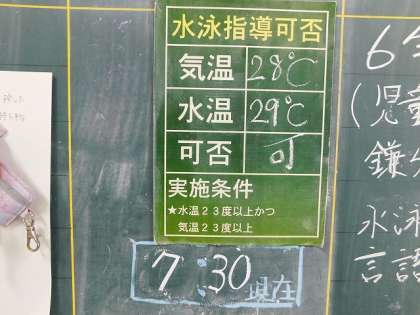 水泳指導可否
気温 28℃
水温 29℃
可否 可
実施条件
★水温23度以上かつ
気温23度以上
7:30現在
6年
(児童
鎌
水泳
言語